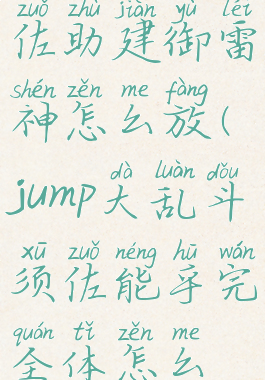 zuǒ zhù jiàn yù léi
佐助建御雷
shén zěn me fàng
神怎么放(
dà luàn dǒu
jump大乱斗
xū zuǒ néng hū wán
须佐能乎完
quán tǐ zěn me
全体怎么